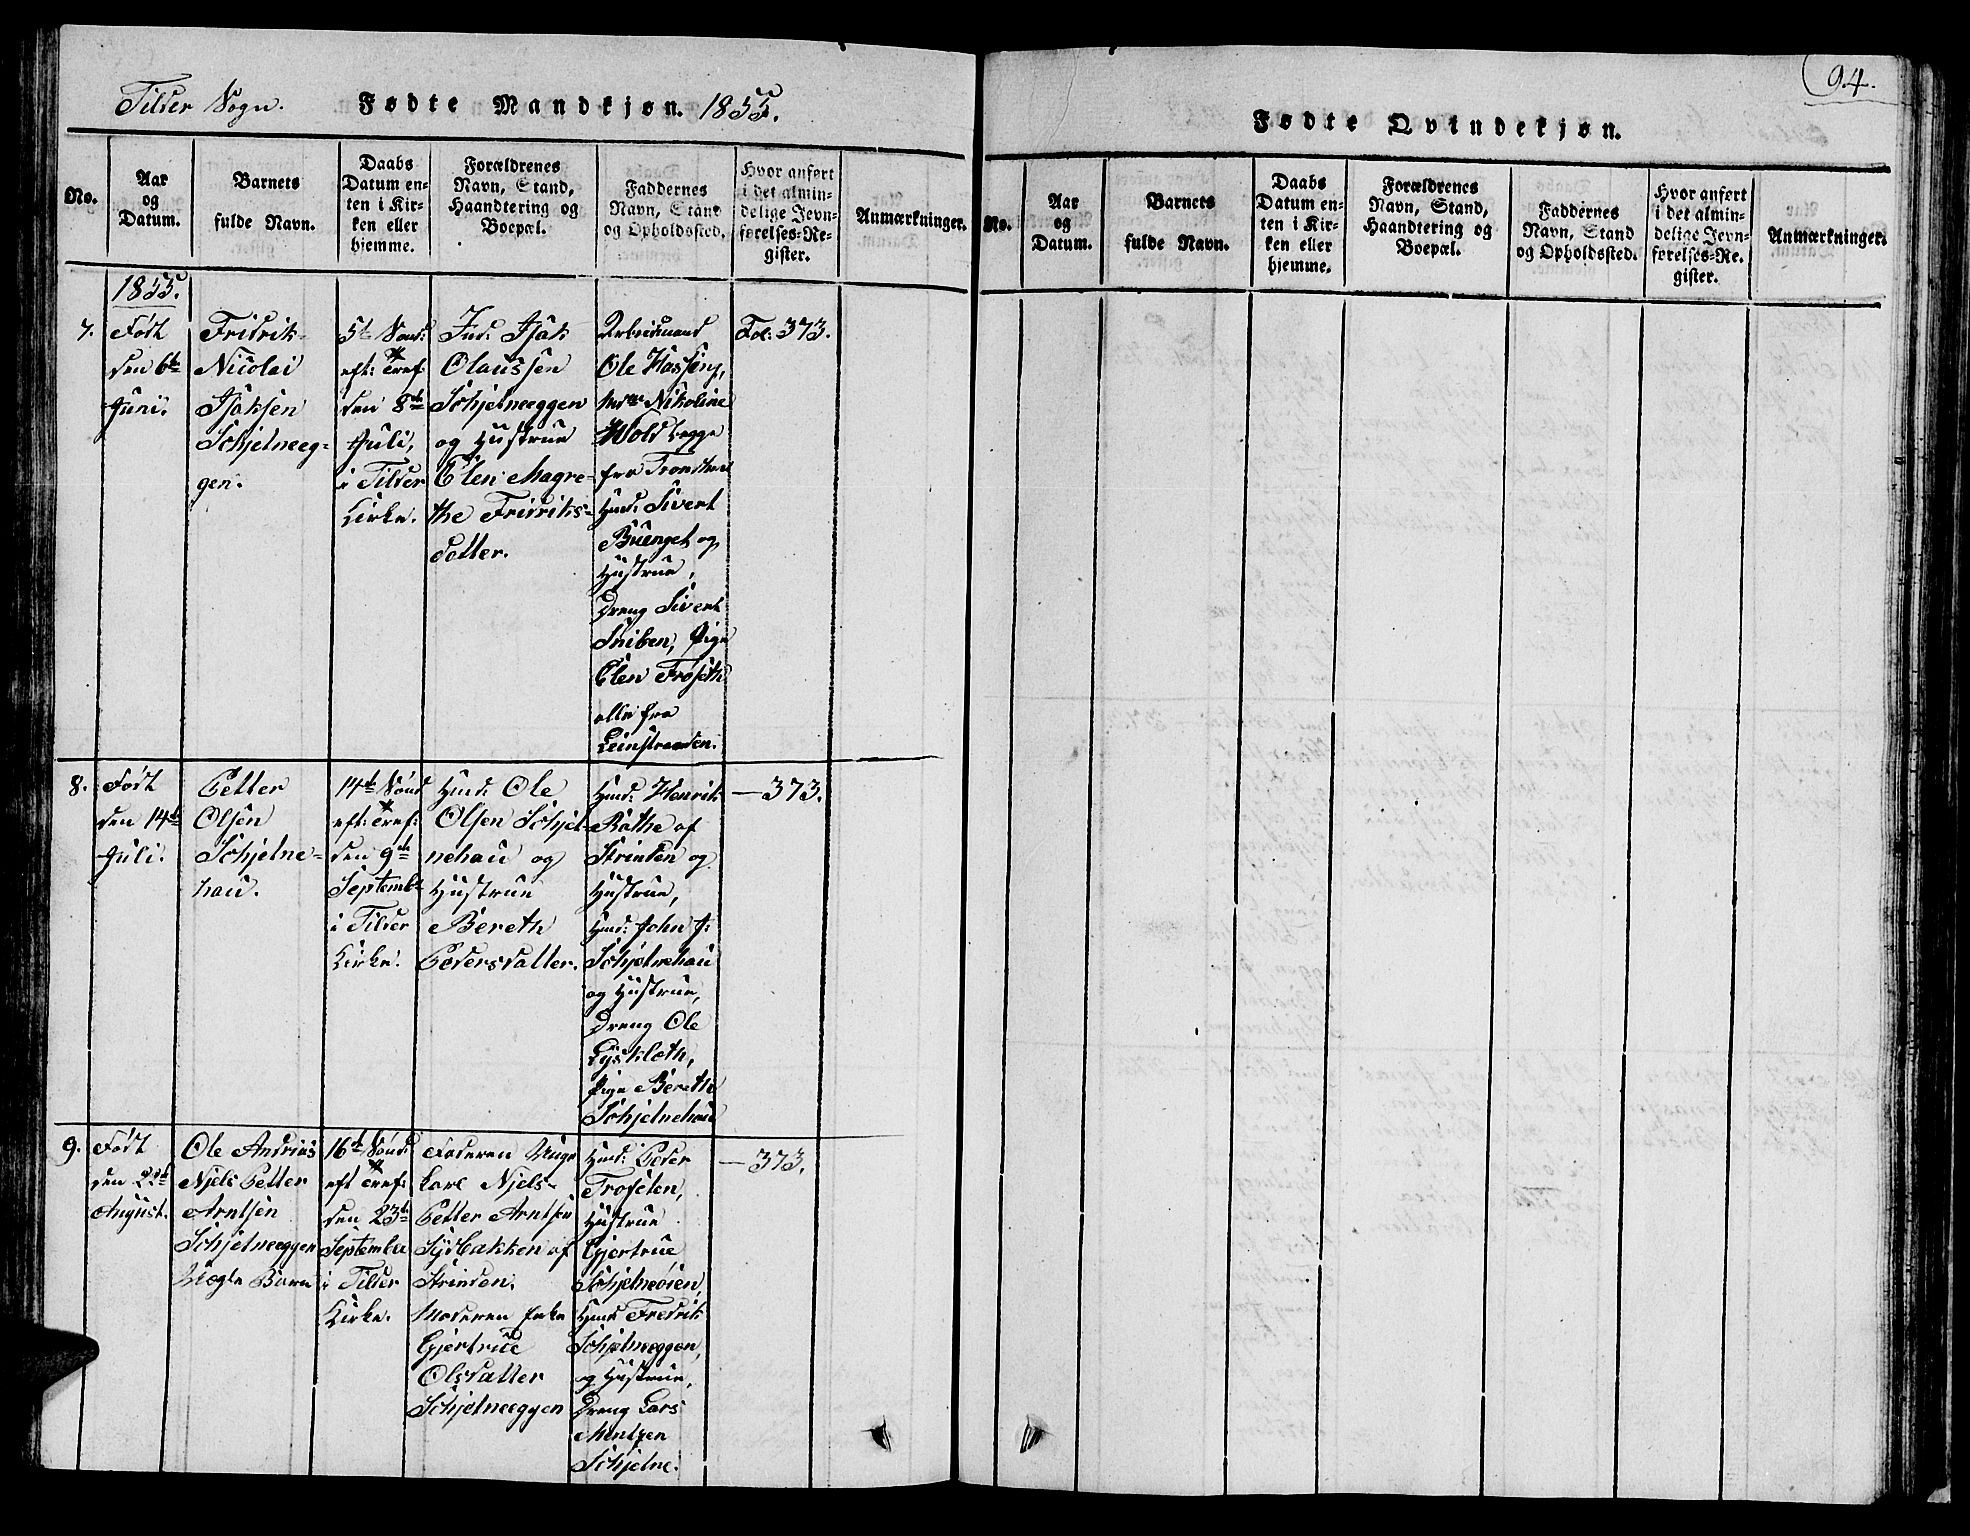 Tilder Sogn. Fødte Mandkjøn. 1855.
No.
Aar
og
Datum.
Barnets
fulde Navn.
Daabs
Datum en-
ten i Kir-
ken eller
hjemme.
Forældrenes
Navn, Stand,
Haandtering og
Boepæl.
Faddernes
Navn, Stand
og Opholdssted.
Hvor anført
i det almin-
delige Jevn-
førelses-Re-
gister.
Anmærkninger.
1855.
7.
Født
den 6te
Juni.
Fridrik
Nicolai
Isaksen
Schjelneeg-
gen.
5te Sønd:
eft: Tref:
den 8de
Juli,
i Tilder
Kirke.
Ind: Isak
Olaussen
Schjelneeggen
og Hustrue
Elen Magre-
the Fridriks-
datter.
Arbeidsmand
Ole Hassing,
Nikoline
Wold begge
fra Trondhem
Huusmd: Sivert
Buenget og
Hustrue,
Dreng Sivert
Sniben, Pige
Elen Frøseth
alle fra
Leinstranden.
Fol: 373.
8.
Født
den 14de
Juli.
Petter
Olsen
Schjelne-
hau.
14de Sønd
eft: Tref:
den 9de
Septemb:
i Tilder
Kirke.
Hmd: Ole
Olsen Schjel-
nehau og
Hustrue
Bereth
Pedersdatter.
Hmd: Henrik
Rathe af
Strinden og
Hustrue,
Hmd: John J:
Schjelnehau
og Hustrue,
Dreng Ole
Lyskloth,
Pige Bereth
Schjelnehau
— 373.
9.
Født
den 22de
August.
Ole Andrias
Njels Petter
Arntsen
Schjelneeggen
Uægte Barn
16de Sønd:
eft Tref:
den 23de
Septembr
i Tilder
Kirke.
Faderen Unge
Karl Njels-
Petter Arntsen
Sydbakken af
Strinden.
Moderen Enke
Gjertrue
Olsdatter
Schjelneeggen
Hmd: Peder
Frøseten,
Hustrue
Gjertrue
Schjelneøien,
Hmd Fredrik
Schjelneeggen,
og Hustrue,
Dreng Lars
Mentzen
Schjelne.
— 373.
94.
Fødte Qvindekjøn.
No.
Aar
og
Datum.
Barnets
fulde Navn.
Daabs
Datum en-
ten i Kir-
ken eller
hjemme.
Forældrenes
Navn, Stand,
Haandtering og
Boepæl.
Faddernes
Navn, Stand
og Opholdssted.
Hvor anført
i det almin-
delige Jevn-
førelses-Re-
gister.
Anmærkninger.